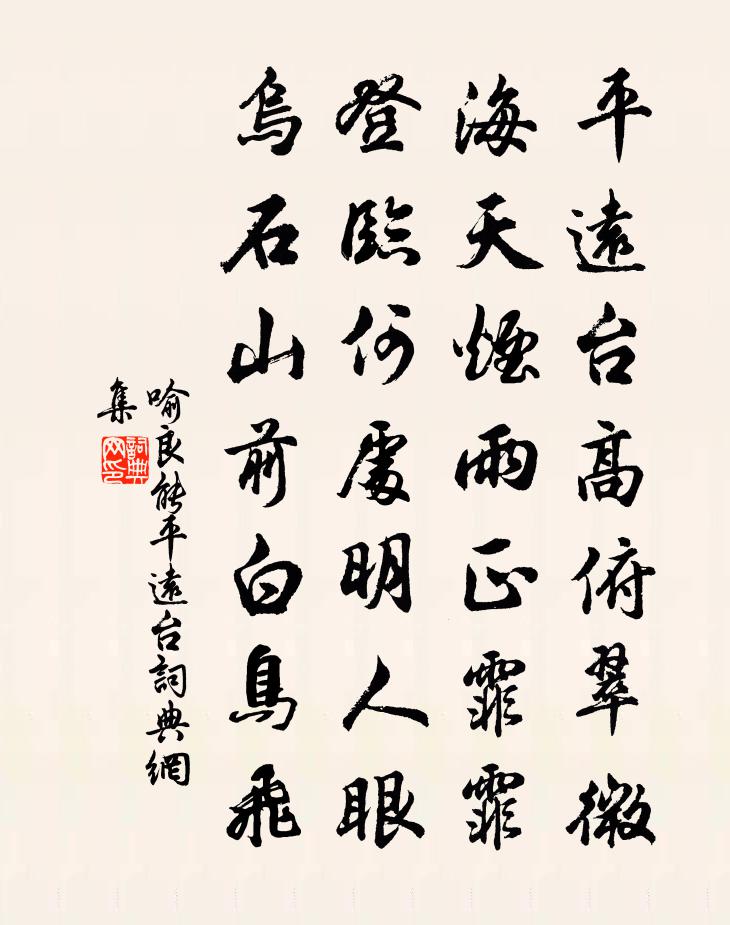 平遠台高俯翠微
海天煙雨正霏霏
登臨何處明人眼
烏石山前白鳥飛
喻良能平遠台詞典網
集
詞典
网印